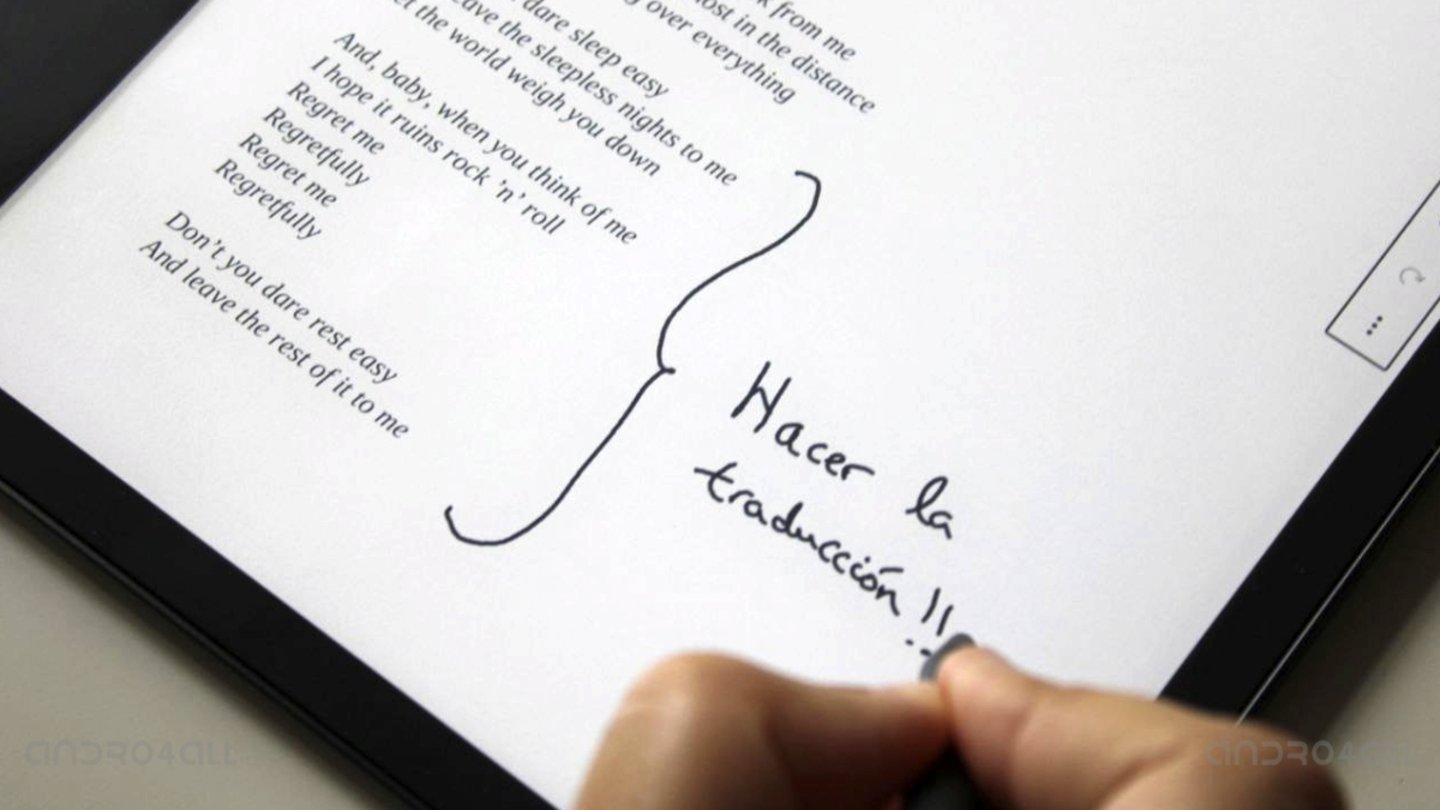 from me
lost in the distance
over everything
dare sleep easy
leave the sleepless nights to me
let the world weigh you down
And, baby, when you think of me
I hope it ruins rock 'n' roll
Regret me
Regretfully
Regret me
Regretfully
Don't you dare rest easy
And leave the rest of it to me
Hacer la
traducción!!
ANDRO4ALL
ANDRO4ALL